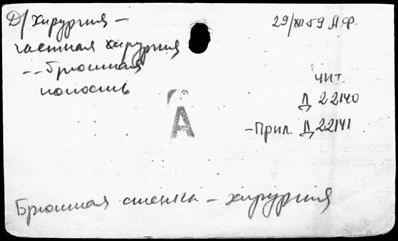 Д/ Хирургия –
частная хирургия
-- Брюшная
полость
29/XII 59 А.Ф.
чит.
Д 22140
– Прил. Д 22141
А
Брюшная стенка – хирургия